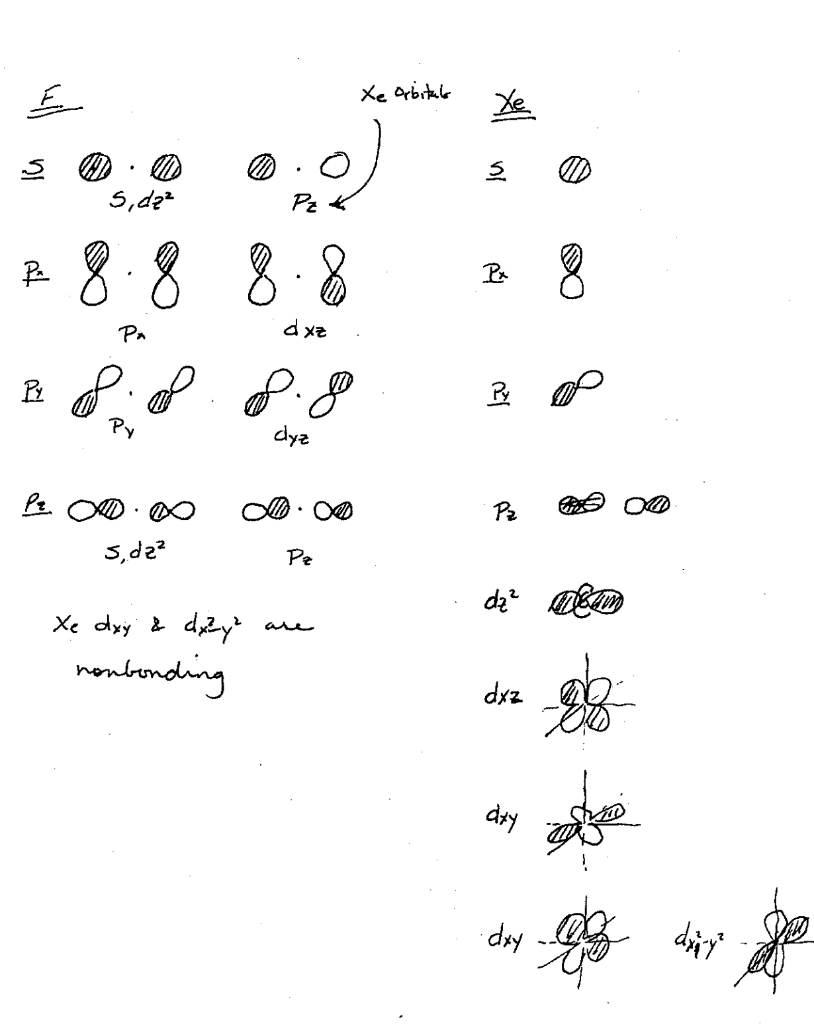 F
Xe Orbitals
Xe
S
S, dz²
Pz
S
Px
Px
dxz
Px
Py
Py
dyz
Py
Pz
S, dz²
Pz
Pz
dz²
Xe dxy & dx²-y² are
nonbonding
dxz
dxy
dxy
dx²-y²